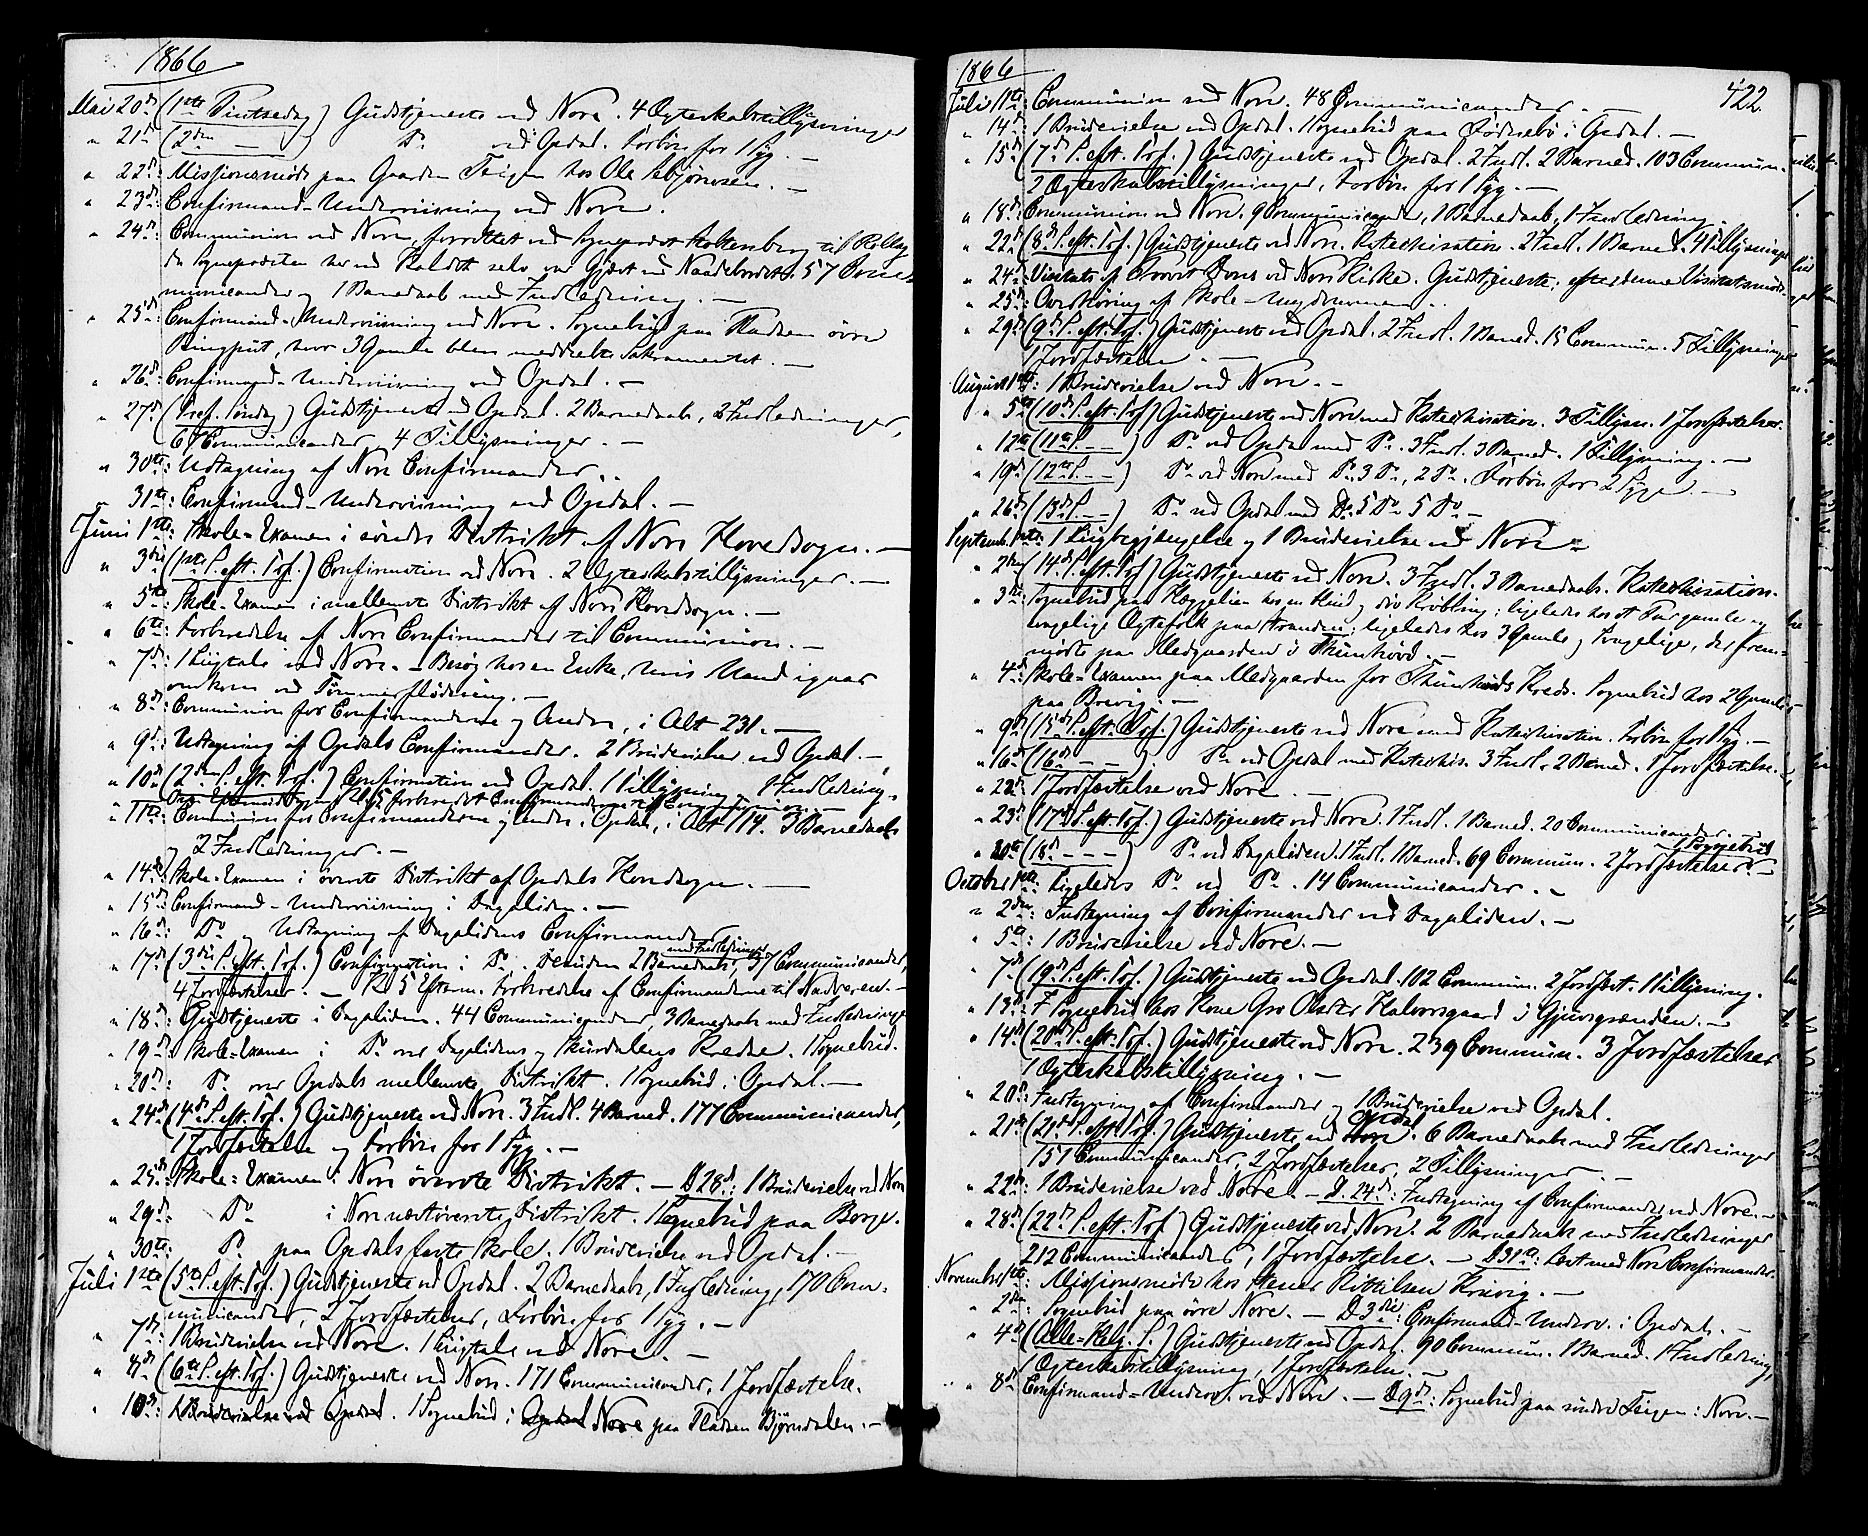 1866
Mai 20de (1ste Pintsedag) Gudstjeneste ved Nore. 4 Ægteskabstillysninger
" 21de (2den — ) Do ved Opdal. Forbøn for 1 Syg. —
" 22de: Missionsmøde paa Gaarden Teigen hos Ole Asbjørnsen. —
" 23de: Confirmand-Underviisning ved Nore.
" 24de: Communion ved Nore, forrettet ved Sognepræst Stoltenberg til Rollag,
da Sognepræsten her ved Kaldet selv var Gjæst ved Naadebordet. 57 Com-
municander og 1 Barnedaab med Indledning. —
" 25de: Confirmand-Underviisning ved Nore. Sognebud paa Pladsen øvre
, hvor 3 Gamle blev meddeelte Sakramentet. —
" 26de: Confirmand-Underviisning ved Opdal. —
" 27de: (Tref. Søndag) Gudstjeneste ved Opdal. 2 Barnedaab, 2 Indledninger,
67 Communicander, 4 Tillysninger. —
" 30te: Udtagning af Nore Confirmander.
" 31te: Confirmand-Underviisning ved Opdal. —
Juni 1ste: Skole-Examen i søndre Distrikt af Nore Hovedsogn. —
" 3die (1ste S. eft. Tref.) Confirmation ved Nore. 2 Ægteskabstillysninger. —
" 5te: Skole-Examen i mellemste Distrikt af Nore Hovedsogn. —
" 6te: Forberedelse af Nore Confirmander til Communion. —
" 7de: 1 Liigtale ved Nore. — Besøg hos en Enke, hvis Mand igaar
omkom ved Tømmerflødning. —
" 8de: Communion for Confirmanderne og Andre, i Alt 231. —
" 9de: Udtagning af Opdals Confirmander. 2 Brudevielser ved Opdal. —
" 10de (2den S. eft. Tref.) Confirmation ved Opdal. 1 Tillysning, 1 Indledning.
Om Eftermiddagen Kl. 5 forberedet Confirmanderne til Communion. —
" 11te: Communion for Confirmanderne og Andre i Opdal, i Alt 114. 3 Barnedaab
og 2 Indledninger. —
" 14de: Skole-Examen i øverste Distrikt af Opdals Hovedsogn. —
" 15de: Confirmand-Underviisning i Dagaliden. —
" 16de: Do og Udtagning af Dagalidens Confirmander.
" 17de (3die S. eft. Tref.) Confirmation i Do. Desuden 2 Barnedaab med Indledninger, 37 Communicander,
4 Jordfæstelser. — Kl. 5 Efterm. Forberedelse af Confirmanderne til Nadveren. —
" 18de: Gudstjeneste i Dagaliden. 44 Communicander, 3 Barnedaab med Indledninger
" 19de: Skole-Examen i Do over Dagalidens og Skurdalens Kredse. 1 Sognebud.
" 20de: Do over Opdals mellemste Distrikt. 1 Sognebud i Opdal. —
" 24de (4de S. eft. Tref.) Gudstjeneste ved Nore. 3 Indl. 4 Barned. 177 Communicander,
1 Jordfæstelse og Forbøn for 1 Syg. —
" 25de: Skole-Examen i Nore øverste Distrikt. — D. 28de: 1 Brudevielse ved Nore
" 29de: Do i Nore næstøverste Distrikt. 1 Sognebud paa Borge.
" 30te: Do paa Opdals faste Skole. 1 Brudevielse ved Opdal. —
Juli 1ste (5te S. eft. Tref.) Gudstjeneste ved Opdal. 2 Barnedaab, 1 Indledning, 170 Com-
municander, 2 Jordfæstelser, Forbøn for 1 Syg. —
" 7de: 1 Brudevielse ved Nore. 1 Liigtale ved Nore. —
" 8de (6te S. eft. Tref.) Gudstjeneste ved Nore. 171 Communicander, 1 Jordfæstelse.
" 10de: 1 Brudevielse ved Opdal. 1 Sognebud i Opdal Nore paa Pladsen Bjørndalen. —
1866
422.
Juli 11te: Communion ved Nore. 48 Communicander. —
" 14de: 1 Brudevielse ved Opdal. 1 Sognebud paa Fødnebø i Opdal. —
" 15de (7de S. eft. Tref.) Gudstjeneste ved Opdal. 2 Indl. 2 Barned. 103 Commun.
2 Ægteskabstillysninger, Forbøn for 1 Syg. —
" 18de: Communion ved Nore. 9 Communicander, 1 Barnedaab, 1 Indledning
" 22de (8de S. eft. Tref.) Gudstjeneste ved Nore. Katechisation. 2 Indl. 1 Barned. 4 Tillysninger
" 24de: Visitats af Provst ved Nore Kirke. Gudstjeneste; efter denne Visitatsmøde.
" 25de: Overhøring af Skole-Ungdommen. —
" 29de (9de S. eft. Tref.) Gudstjeneste ved Opdal. 2 Indl. 1 Barned. 15 Commun. 5 Tillysninger
1 Jordfæstelse. —
August 1ste: 1 Brudevielse ved Nore. —
" 5te (10de S. eft. Tref.) Gudstjeneste ved Nore med Katechisation. 3 Tillysn. 1 Jordfæstelse.
" 12te (11te S. — —) Do ved Opdal med Do. 3 Indl. 3 Barned. 1 Tillysning. —
" 19de (12te S. — —) Do ved Nore med Do. 3 Do, 2 Do. Forbøn for 2 Syge. —
" 26de (13de S. — —) Do ved Opdal med Do 5 Do 5 Do —
Septemb. 1ste: 1 Liigbegjængelse og 1 Brudevielse ved Nore —
" 2den (14de S. eft. Tref.) Gudstjeneste ved Nore. 3 Indl. 3 Barnedaab. Katechisation.
" 3die: Sognebud paa hos en blind og død Krøbling; ligeledes hos et Par gamle og
svagelige Ægtefolk paa Stranden; ligeledes hos 3 Gamle og Svagelige, der frem-
mødte paa Medgaarden i Thunhovd. —
" 4de: Skole-Examen paa Medgaarden for Thunhovds Kreds. Sognebud hos 2 Gamle
paa Brevig. —
" 9de (15de S. eft. Tref.) Gudstjeneste ved Nore med Katechisation. Forbøn for 1 Syg. —
" 16de (16de — — —) Do ved Opdal med Katechis. 3 Indl. 2 Barned. 1 Jordfæstelse. —
" 22de: 1 Jordfæstelse ved Nore. —
" 23de (17de S. eft. Tref.) Gudstjeneste ved Nore. 1 Indl. 1 Barned. 20 Communicander. 1 Sognebud
" 30te (18de — — —) Do ved Dagaliden. 1 Indl. 1 Barned. 69 Commun. 2 Jordfæstelser. —
October 1ste: Ligeledes Do ved Do. 14 Communicander. —
" 2den: Indtagning af Confirmander ved Dagaliden. —
" 5te: 1 Brudevielse ved Nore. —
" 7de (19de S. eft. Tref.) Gudstjeneste ved Opdal. 102 Commun. 2 Jordfæst. 1 Tillysning.
" 13de: 1 Sognebud hos Kone Gro Olsdtr Halvorsgaard i Gjuvsgrænden. —
" 14de (20de S. eft. Tref.) Gudstjeneste ved Nore. 239 Commun. 3 Jordfæstelser
1 Ægteskabstillysning. —
" 20de: Indtagning af Confirmander og 1 Brudevielse ved Opdal.
" 21de (21de S. eft. Tref.) Gudstjeneste ved Nore Opdal. 6 Barnedaab med Indledninger
151 Communicander, 2 Jordfæstelser, 2 Tillysninger. —
" 22de: 1 Brudevielse ved Nore. — D. 24de: Indtagning af Confirmander ved Nore. —
" 28de (22de S. eft. Tref.) Gudstjeneste ved Nore. 2 Barnedaab med Indledninger
212 Communicander, 1 Jordfæstelse. — D. 31te: Læst med Nore Confirmander.
November 1ste: Missionsmøde hos Stener Kittilsen Kravig. —
" 2den: Sognebud paa øvre Nore. — D. 3die: Confirmand-Underv. i Opdal. —
" 4de (Alle-Helg. S.) Gudstjeneste ved Opdal. 90 Commun. 1 Barned. 1 Indledning,
1 Ægteskabstillysning, 1 Jordfæstelse. —
" 8de: Confirmand-Underv. ved Nore. — D. 9de: Sognebud paa søndre Teigen i Nore. —